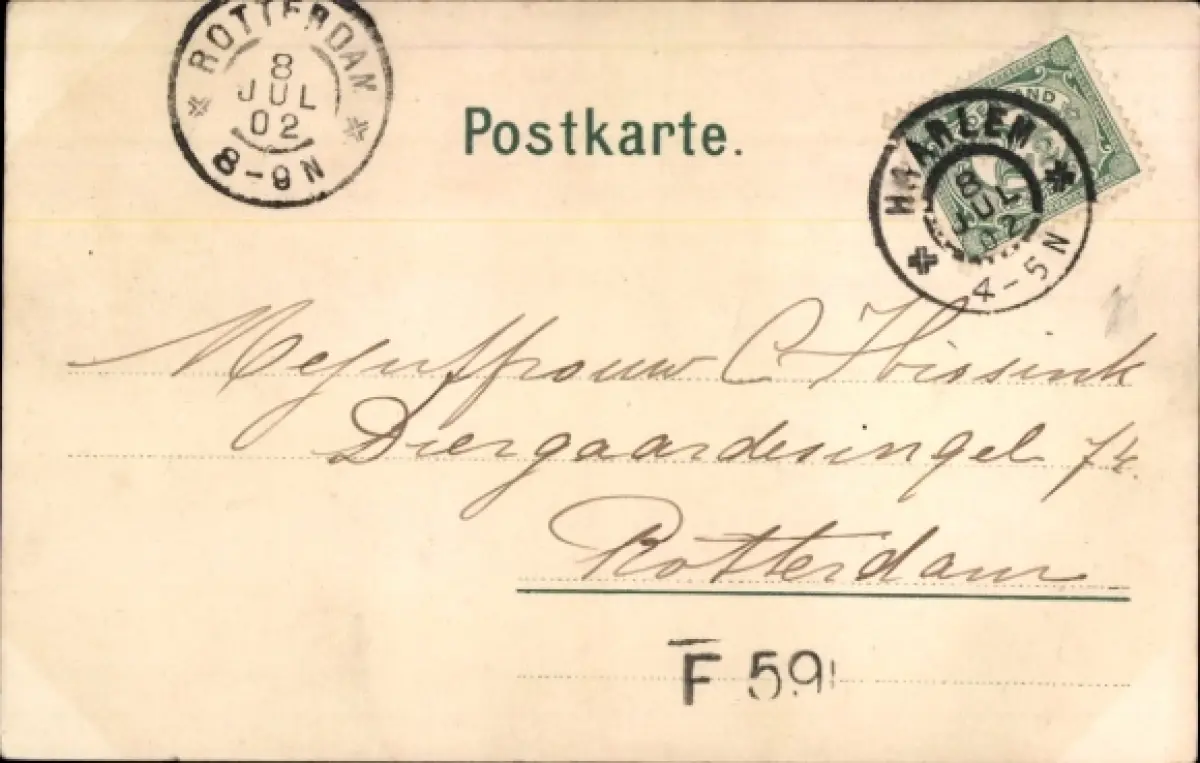 ROTTERDAM
8
JUL
02
8-9N
Postkarte.
HAARLEM
8
JUL
02
4-5N
Mejuffrouw C Hissink
Diergaardesingel 74.
Rotterdam
F 59